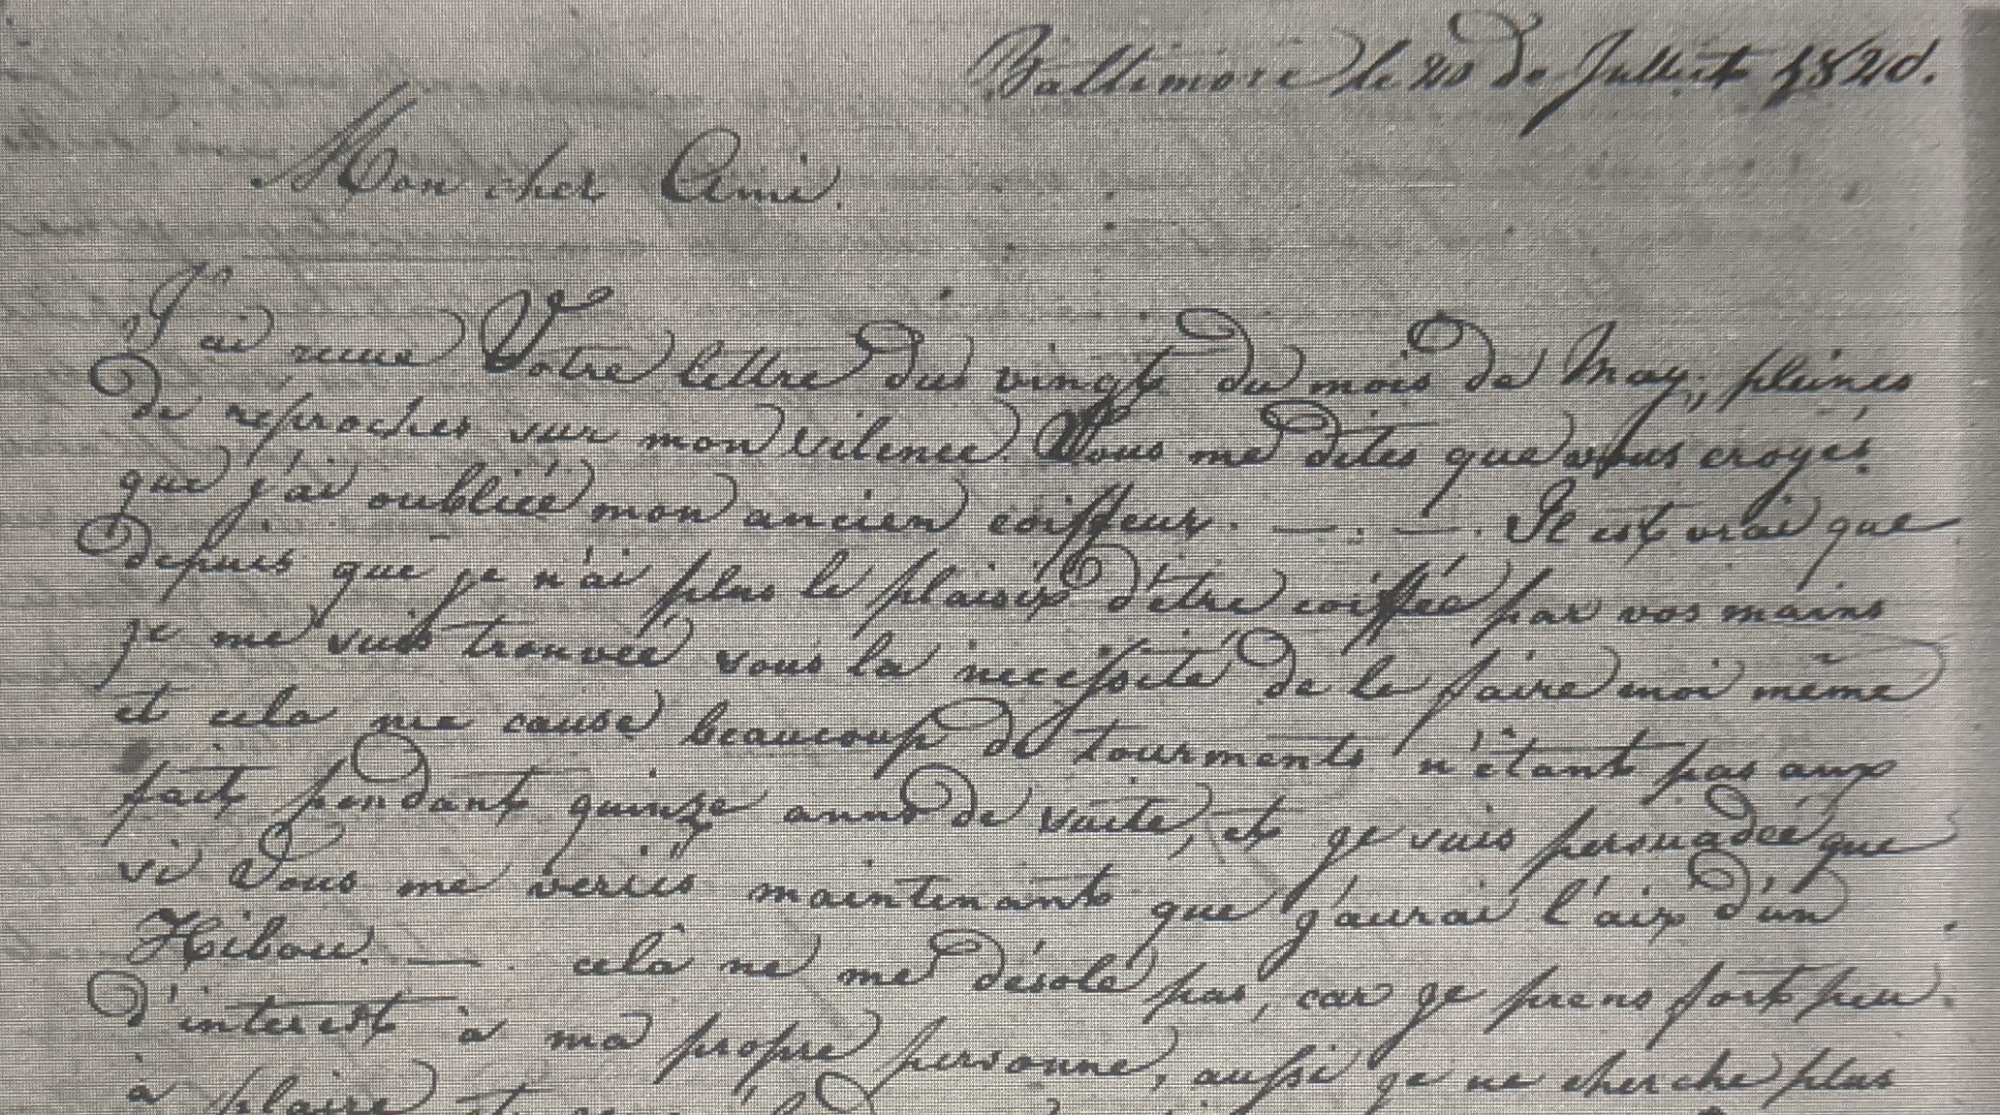 Baltimore le 20 de Julliet 1820.
Mon cher Ami.
J'ai reçue Votre lettre du vingt du mois de May, pleines
de réproches sur mon silence. Vous me dites que vous croyés
que j'ai oubliée mon ancien coiffeur. — . — . Il est vrai que
depuis que je n'ai plus le plaisir d'être coiffée par vos mains
je me suis trouvée sous la necessité de le faire moi même
et cela me cause beaucoup de tourments n'étant pas aux
fait pendant quinze anns de suite, et je suis persuadée que
si Vous me veriés maintenant que j'aurai l'air d'un
Hibou. — . celà ne me désole pas, car je prens fort peu
d'interest à ma propre personne, aussi je ne cherche plus
à plaire et